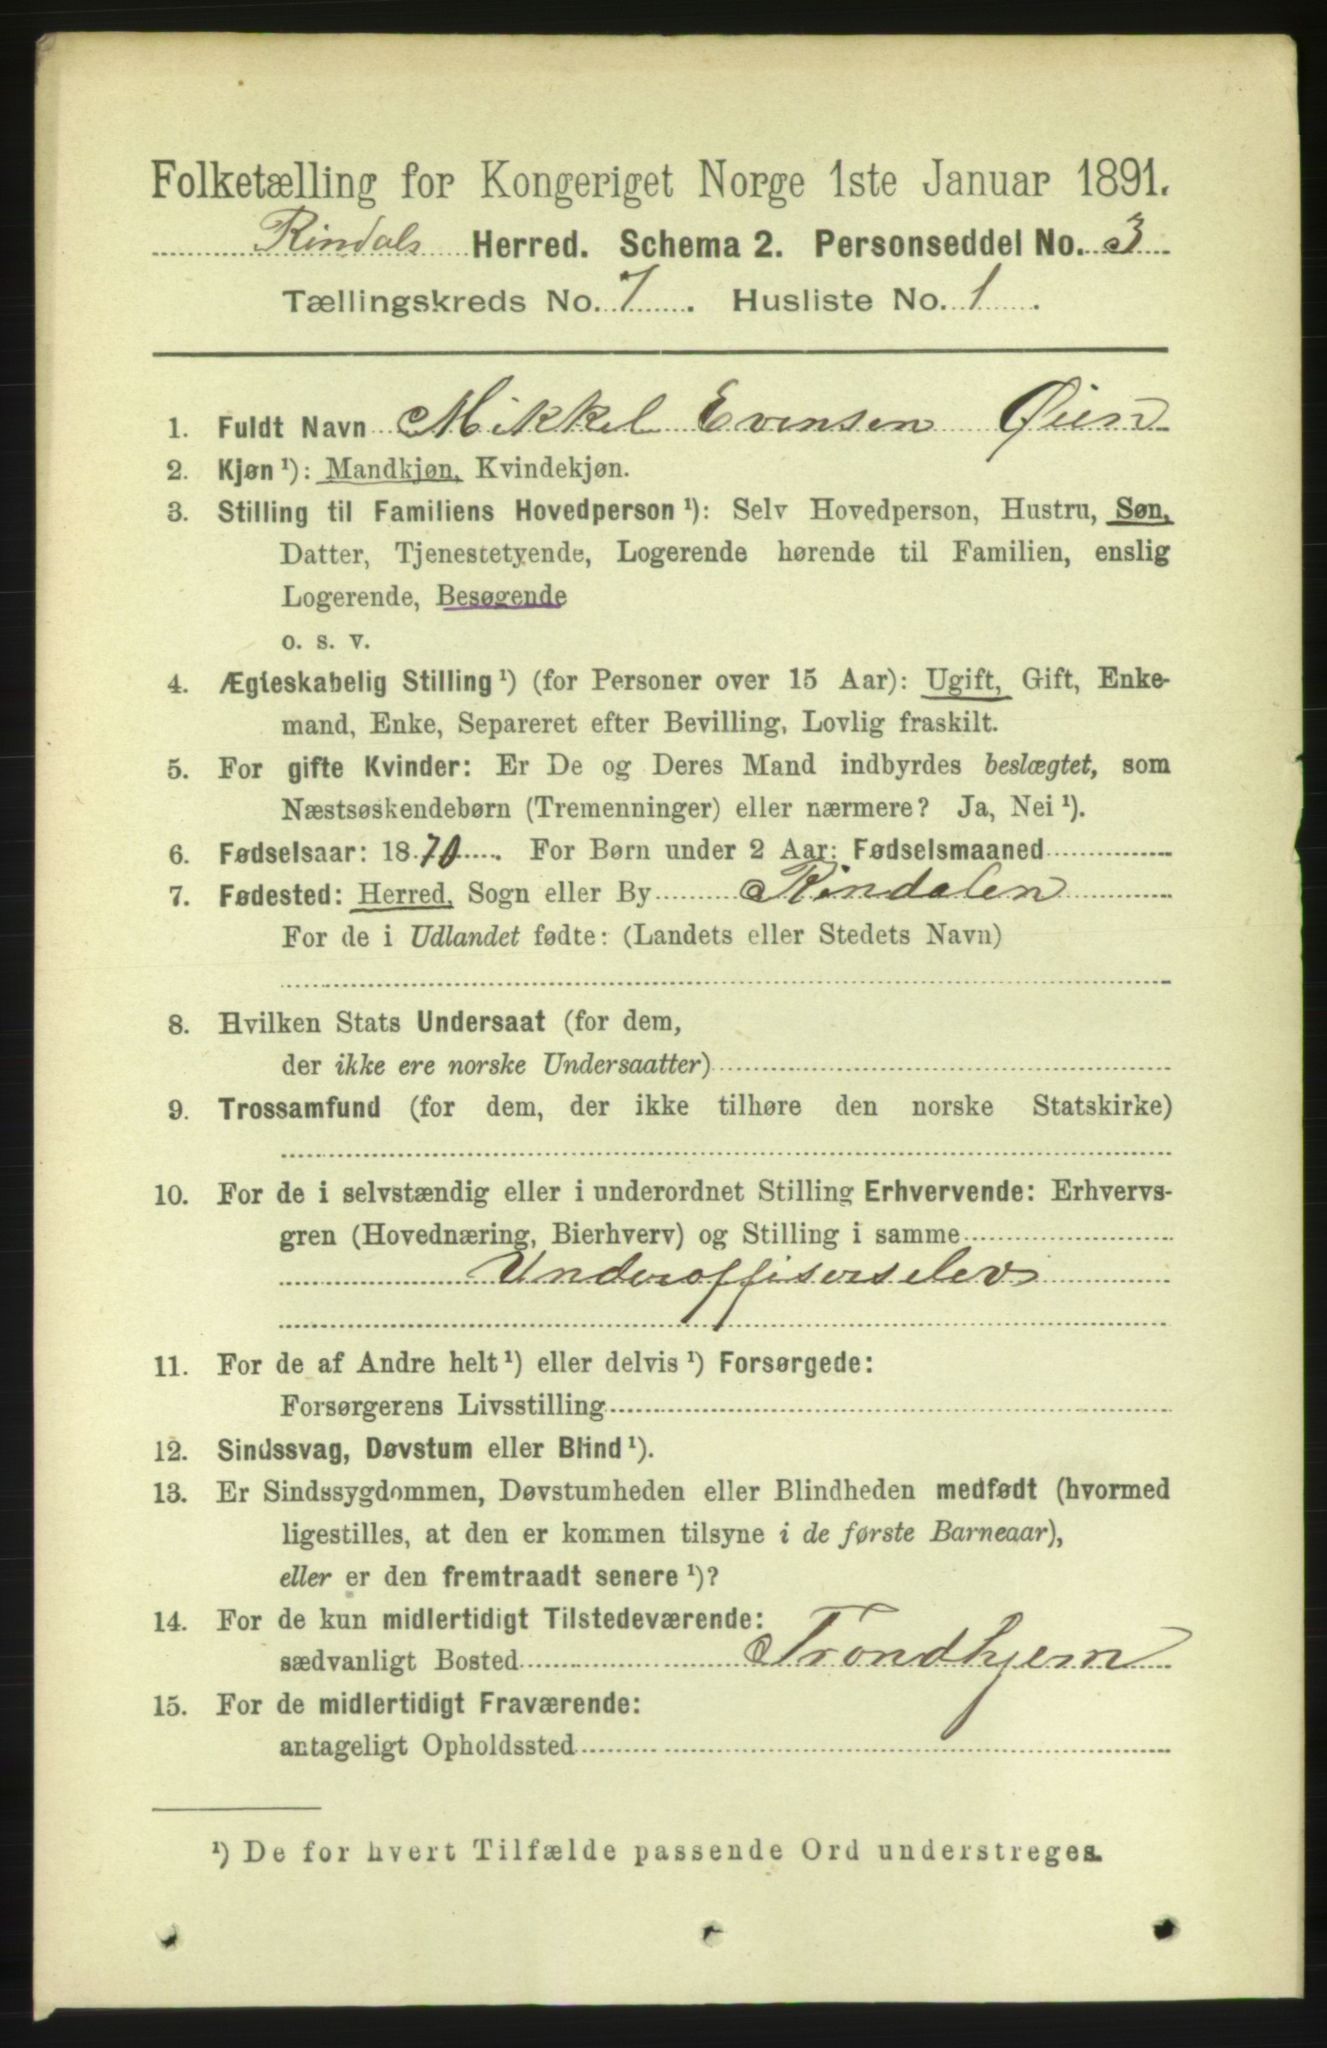 Folketælling for Kongeriget Norge 1ste Januar 1891.
Rindals Herred. Schema 2. Personseddel No. 3
Tællingskreds No. 7. Husliste No. 1.
1. Fuldt Navn Mikkel Evensen Øien
2. Kjøn¹): Mandkjøn, Kvindekjøn.
3. Stilling til Familiens Hovedperson¹): Selv Hovedperson, Hustru, Søn,
Datter, Tjenestetyende, Logerende hørende til Familien, enslig
Logerende, Besøgende
o. s. v.
4. Ægteskabelig Stilling¹) (for Personer over 15 Aar): Ugift, Gift, Enke-
mand, Enke, Separeret efter Bevilling, Lovlig fraskilt.
5. For gifte Kvinder: Er De og Deres Mand indbyrdes beslægtet, som
Næstsøskendebørn (Tremenninger) eller nærmere? Ja, Nei¹).
6. Fødselsaar: 1870. For Børn under 2 Aar: Fødselsmaaned
7. Fødested: Herred, Sogn eller By Rindalen
For de i Udlandet fødte: (Landets eller Stedets Navn)
8. Hvilken Stats Undersaat (for dem,
der ikke ere norske Undersaatter)
9. Trossamfund (for dem, der ikke tilhøre den norske Statskirke)
10. For de i selvstændig eller i underordnet Stilling Erhvervende: Erhvervs-
gren (Hovednæring, Bierhverv) og Stilling i samme
Underoffiserselev
11. For de af Andre helt¹) eller delvis¹) Forsørgede:
Forsørgerens Livsstilling
12. Sindssvag, Døvstum eller Blind¹).
13. Er Sindssygdommen, Døvstumheden eller Blindheden medfødt (hvormed
ligestilles, at den er kommen tilsyne i de første Barneaar),
eller er den fremtraadt senere¹)?
14. For de kun midlertidigt Tilstedeværende:
sædvanligt Bosted Trondhjem
15. For de midlertidigt Fraværende:
antageligt Opholdssted
¹) De for hvert Tilfælde passende Ord understreges.